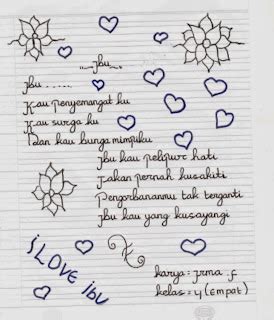 ....ibu....
Ibu ......
Kau penyemangat ku
Kau surga ku
Dan kau bunga mimpiku
Ibu kau pelipur hati
Takan pernah kusakiti
Pengorbananmu tak terganti
Ibu kau yang kusayangi
I LOVE ibu
karya : Irma .f
kelas : 4 (Empat)